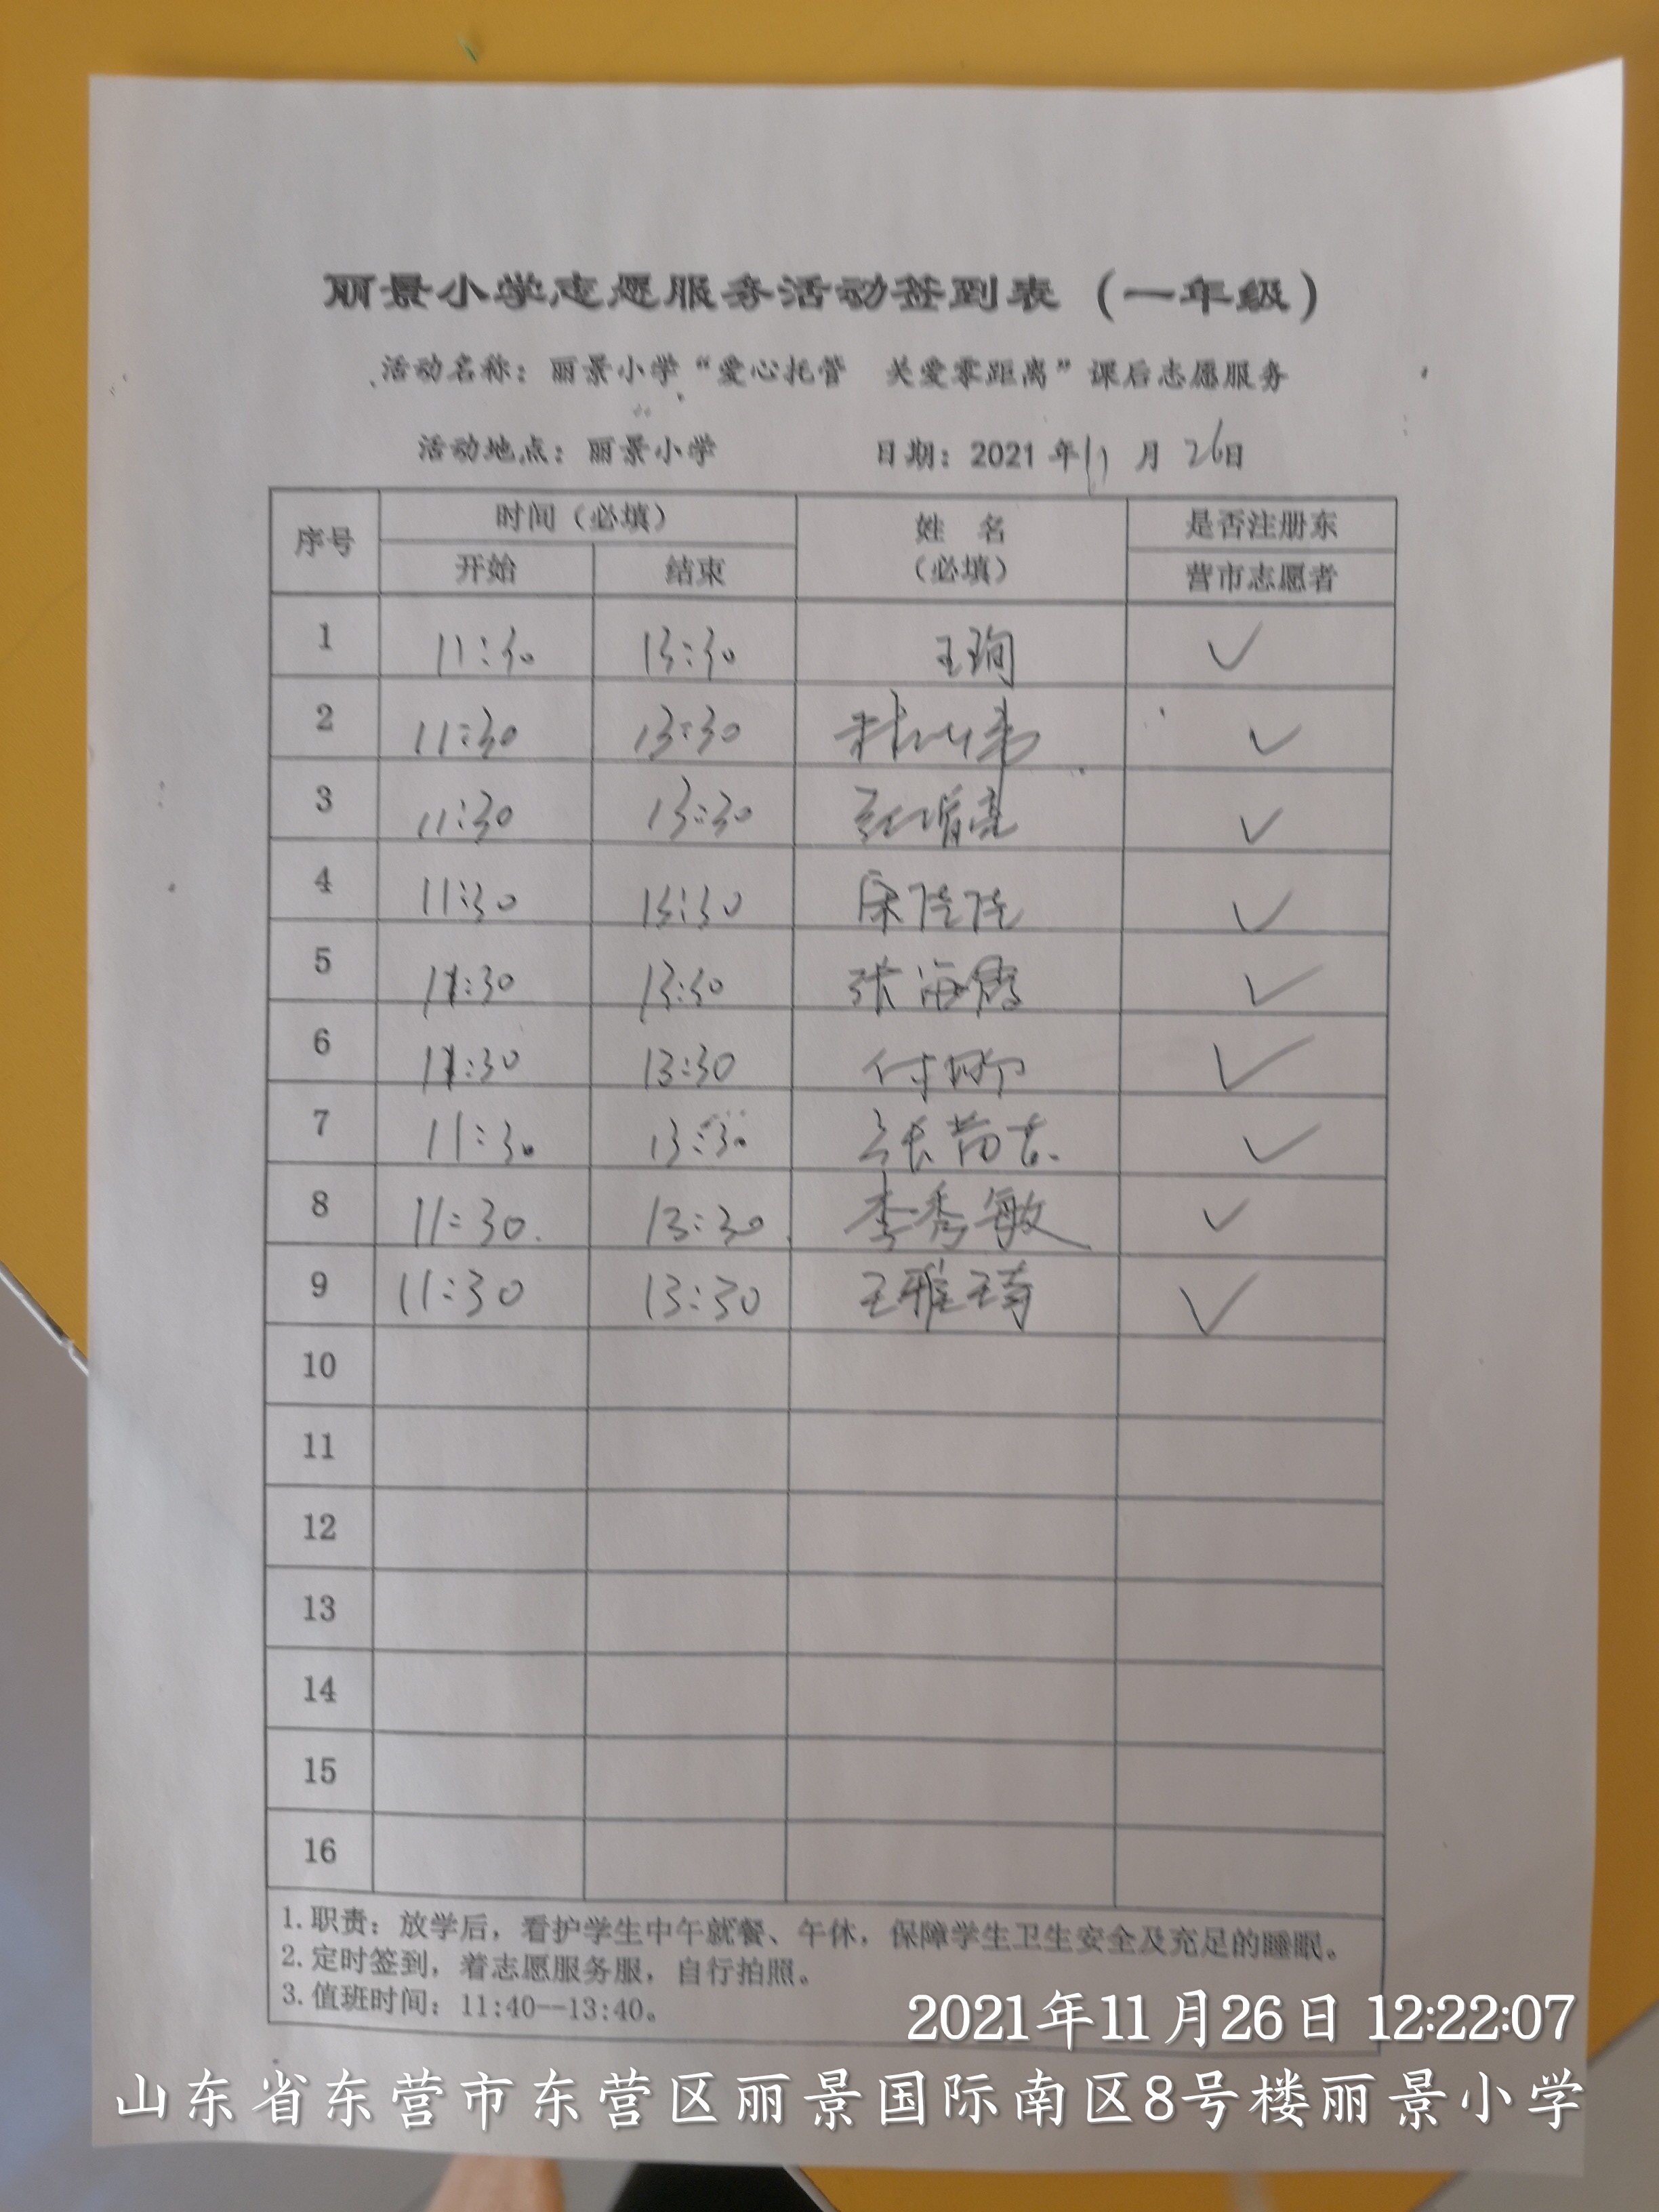 丽景小学志愿服务活动签到表（一年级）
活动名称：丽景小学“爱心托管 关爱零距离”课后志愿服务
活动地点：丽景小学 日期：2021 年 11 月 26日
序号 时间（必填） 姓 名（必填） 是否注册东营市志愿者
开始 结束
1 11:30 13:30 王珣 ✓
2 11:30 13:30 ✓
3 11:30 13:30 ✓
4 11:30 13:30 宋佳佳 ✓
5 11:30 13:30 张海霞 ✓
6 11:30 13:30 ✓
7 11:30 13:30 ✓
8 11:30 13:30 李秀敏 ✓
9 11:30 13:30 王雅琦 ✓
10
11
12
13
14
15
16
1.职责：放学后，看护学生中午就餐、午休，保障学生卫生安全及充足的睡眠。
2.定时签到，着志愿服务服，自行拍照。
3.值班时间：11:40--13:40。
2021年11月26日 12:22:07
山东省东营市东营区丽景国际南区8号楼丽景小学